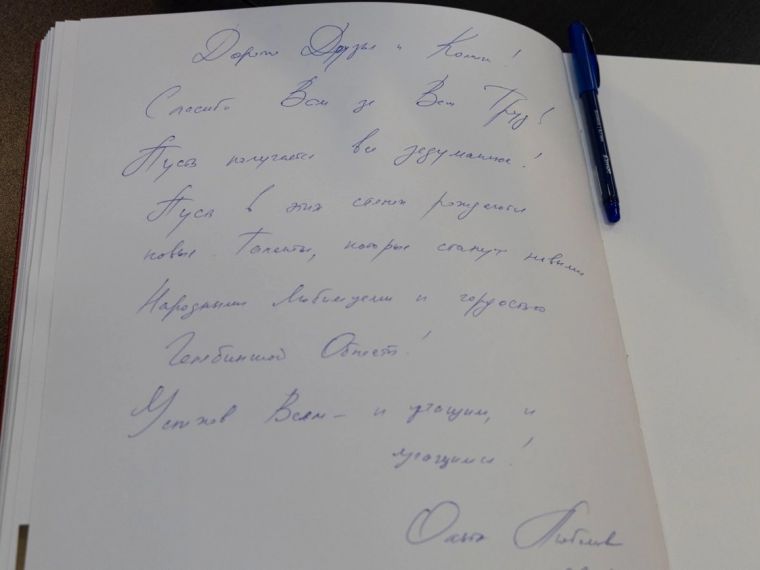 Дорогие Друзья и Коллеги!
Спасибо Вам за Ваш Труд!
Пусть получается все задуманное!
Пусть в этих стенах рождаются
новые Таланты, которые станут новыми
Народными Любимцами и гордостью
Челябинской Области!
Успехов Всем – и учащим, и
учащимся!
Ольга